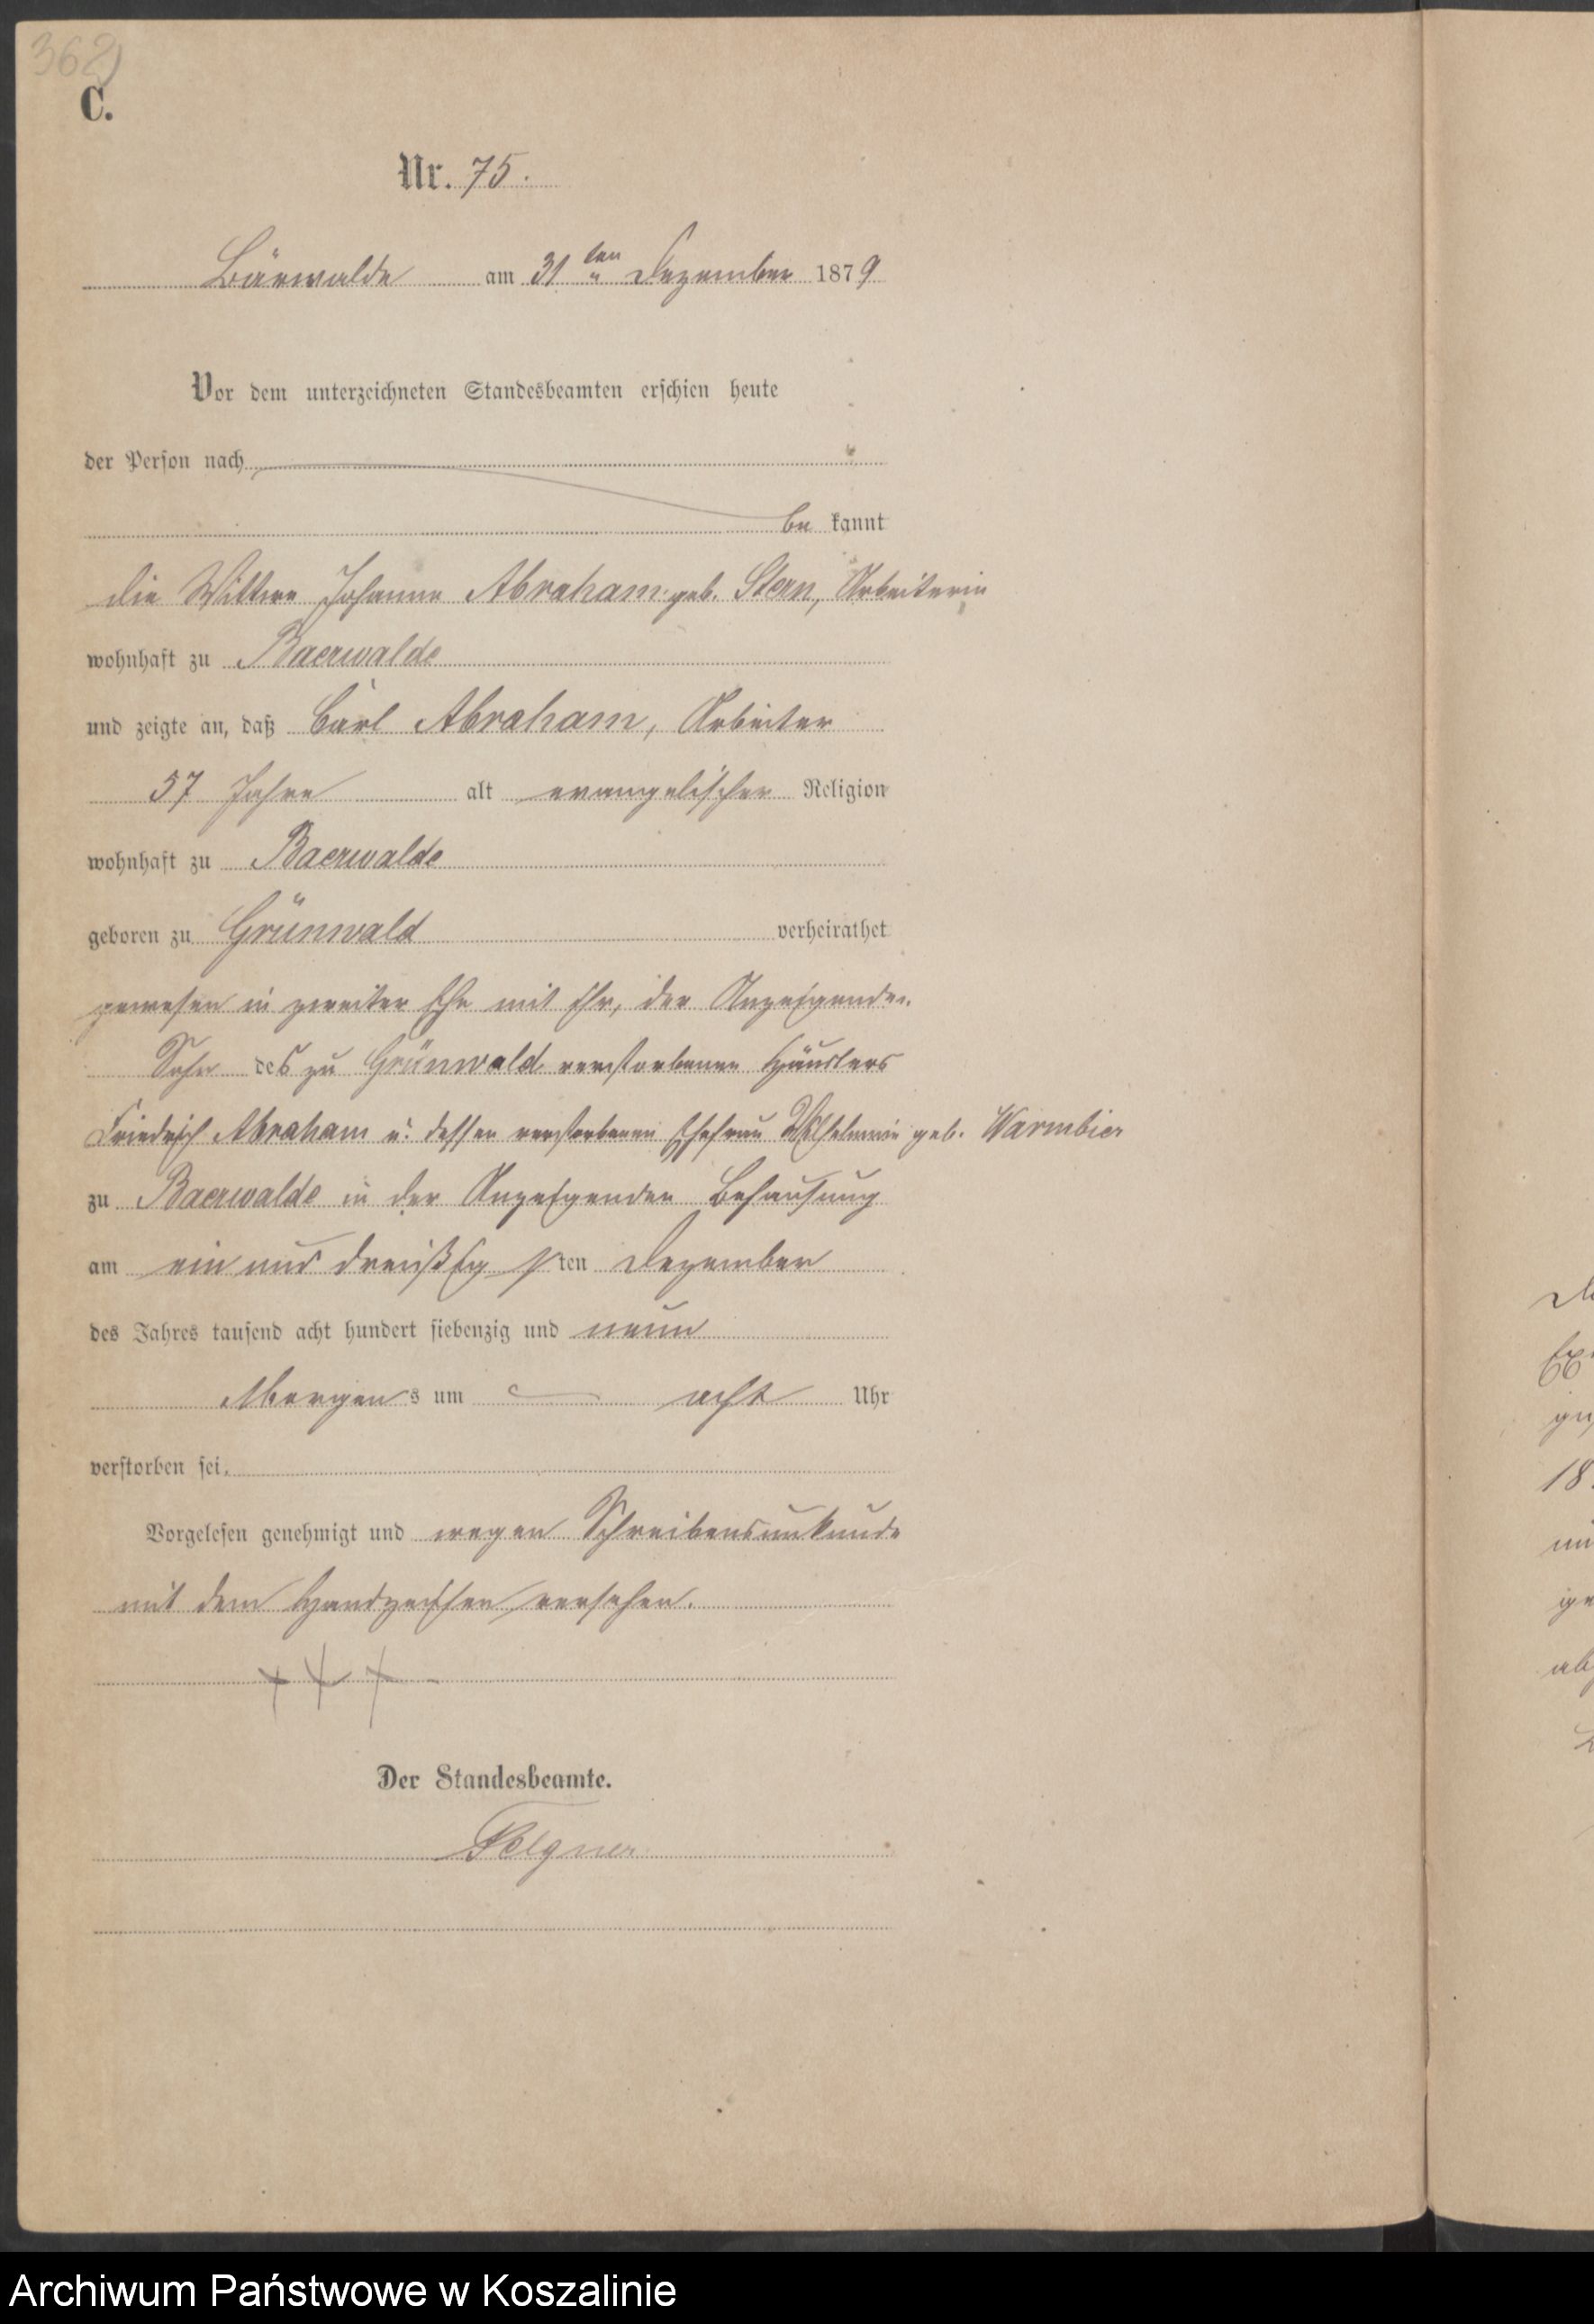 362)
C.
Nr. 75.
Bärwalde am 31ten Dezember 1879
Vor dem unterzeichneten Standesbeamten erschien heute
der Person nach
be kannt
die Wittwe Johanne Abraham geb. Stern, Arbeiterin
wohnhaft zu Baerwalde
und zeigte an, daß Carl Abraham, Arbeiter
57 Jahre alt evangelischer Religion
wohnhaft zu Baerwalde
geboren zu Grünwald verheirathet
gewesen in zweiter Ehe mit ihr, der Anzeigenden.
Sohn des zu Grünwald verstorbenen Häuslers
Friedrich Abraham u. dessen verstorbenen Ehefrau Wilhelmine geb. Warmbier
zu Baerwalde in der Anzeigenden Behausung
am ein und dreißig sten Dezember
des Jahres tausend acht hundert siebenzig und neun
Morgens um acht Uhr
verstorben sei.
Vorgelesen genehmigt und wegen Schreibensunkunde
mit dem Handzeichen versehen.
+ + +
Der Standesbeamte.
Felgner
Archiwum Państwowe w Koszalinie